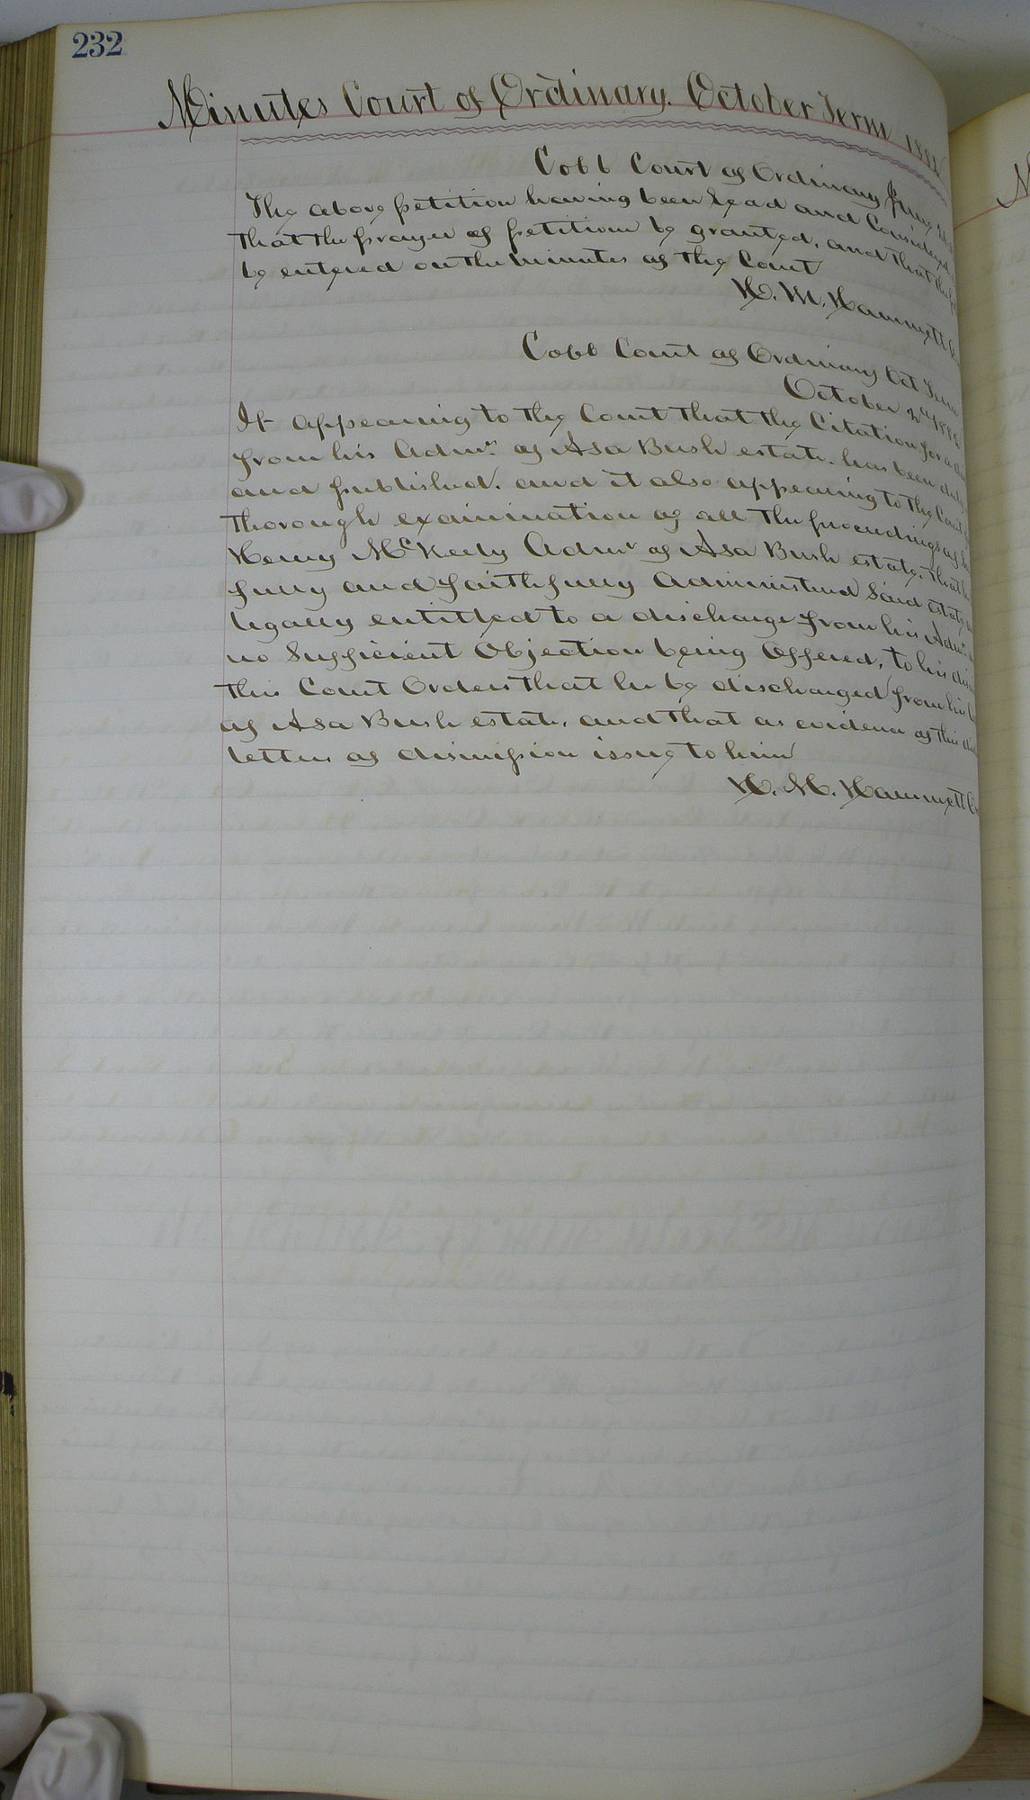 232
Minutes Court of Ordinary. October Term
Cobb Court of Ordinary June
The above petition having been Read and Considered
that the prayer of petition be granted, and that the
be entered on the Minutes of the Court
H. M. Hammett
Cobb Court of Ordinary Oct Term
October 2nd
It appearing to the Court that the Citation for
from his Admr. of Asa Bush estate. has been duly
and published. and it also appearing to the Court
thorough examination of all the proceedings of
Henry Admr of Asa Bush estate, that he
fully and faithfully Administered Said estate
legally entitled to a discharge from his Admr.
no Sufficient Objection being Offered, to his
this Court Orders that he be discharged from his
of Asa Bush estate, and that as evidence of this
letters of dismission issue to him
H. M. Hammett